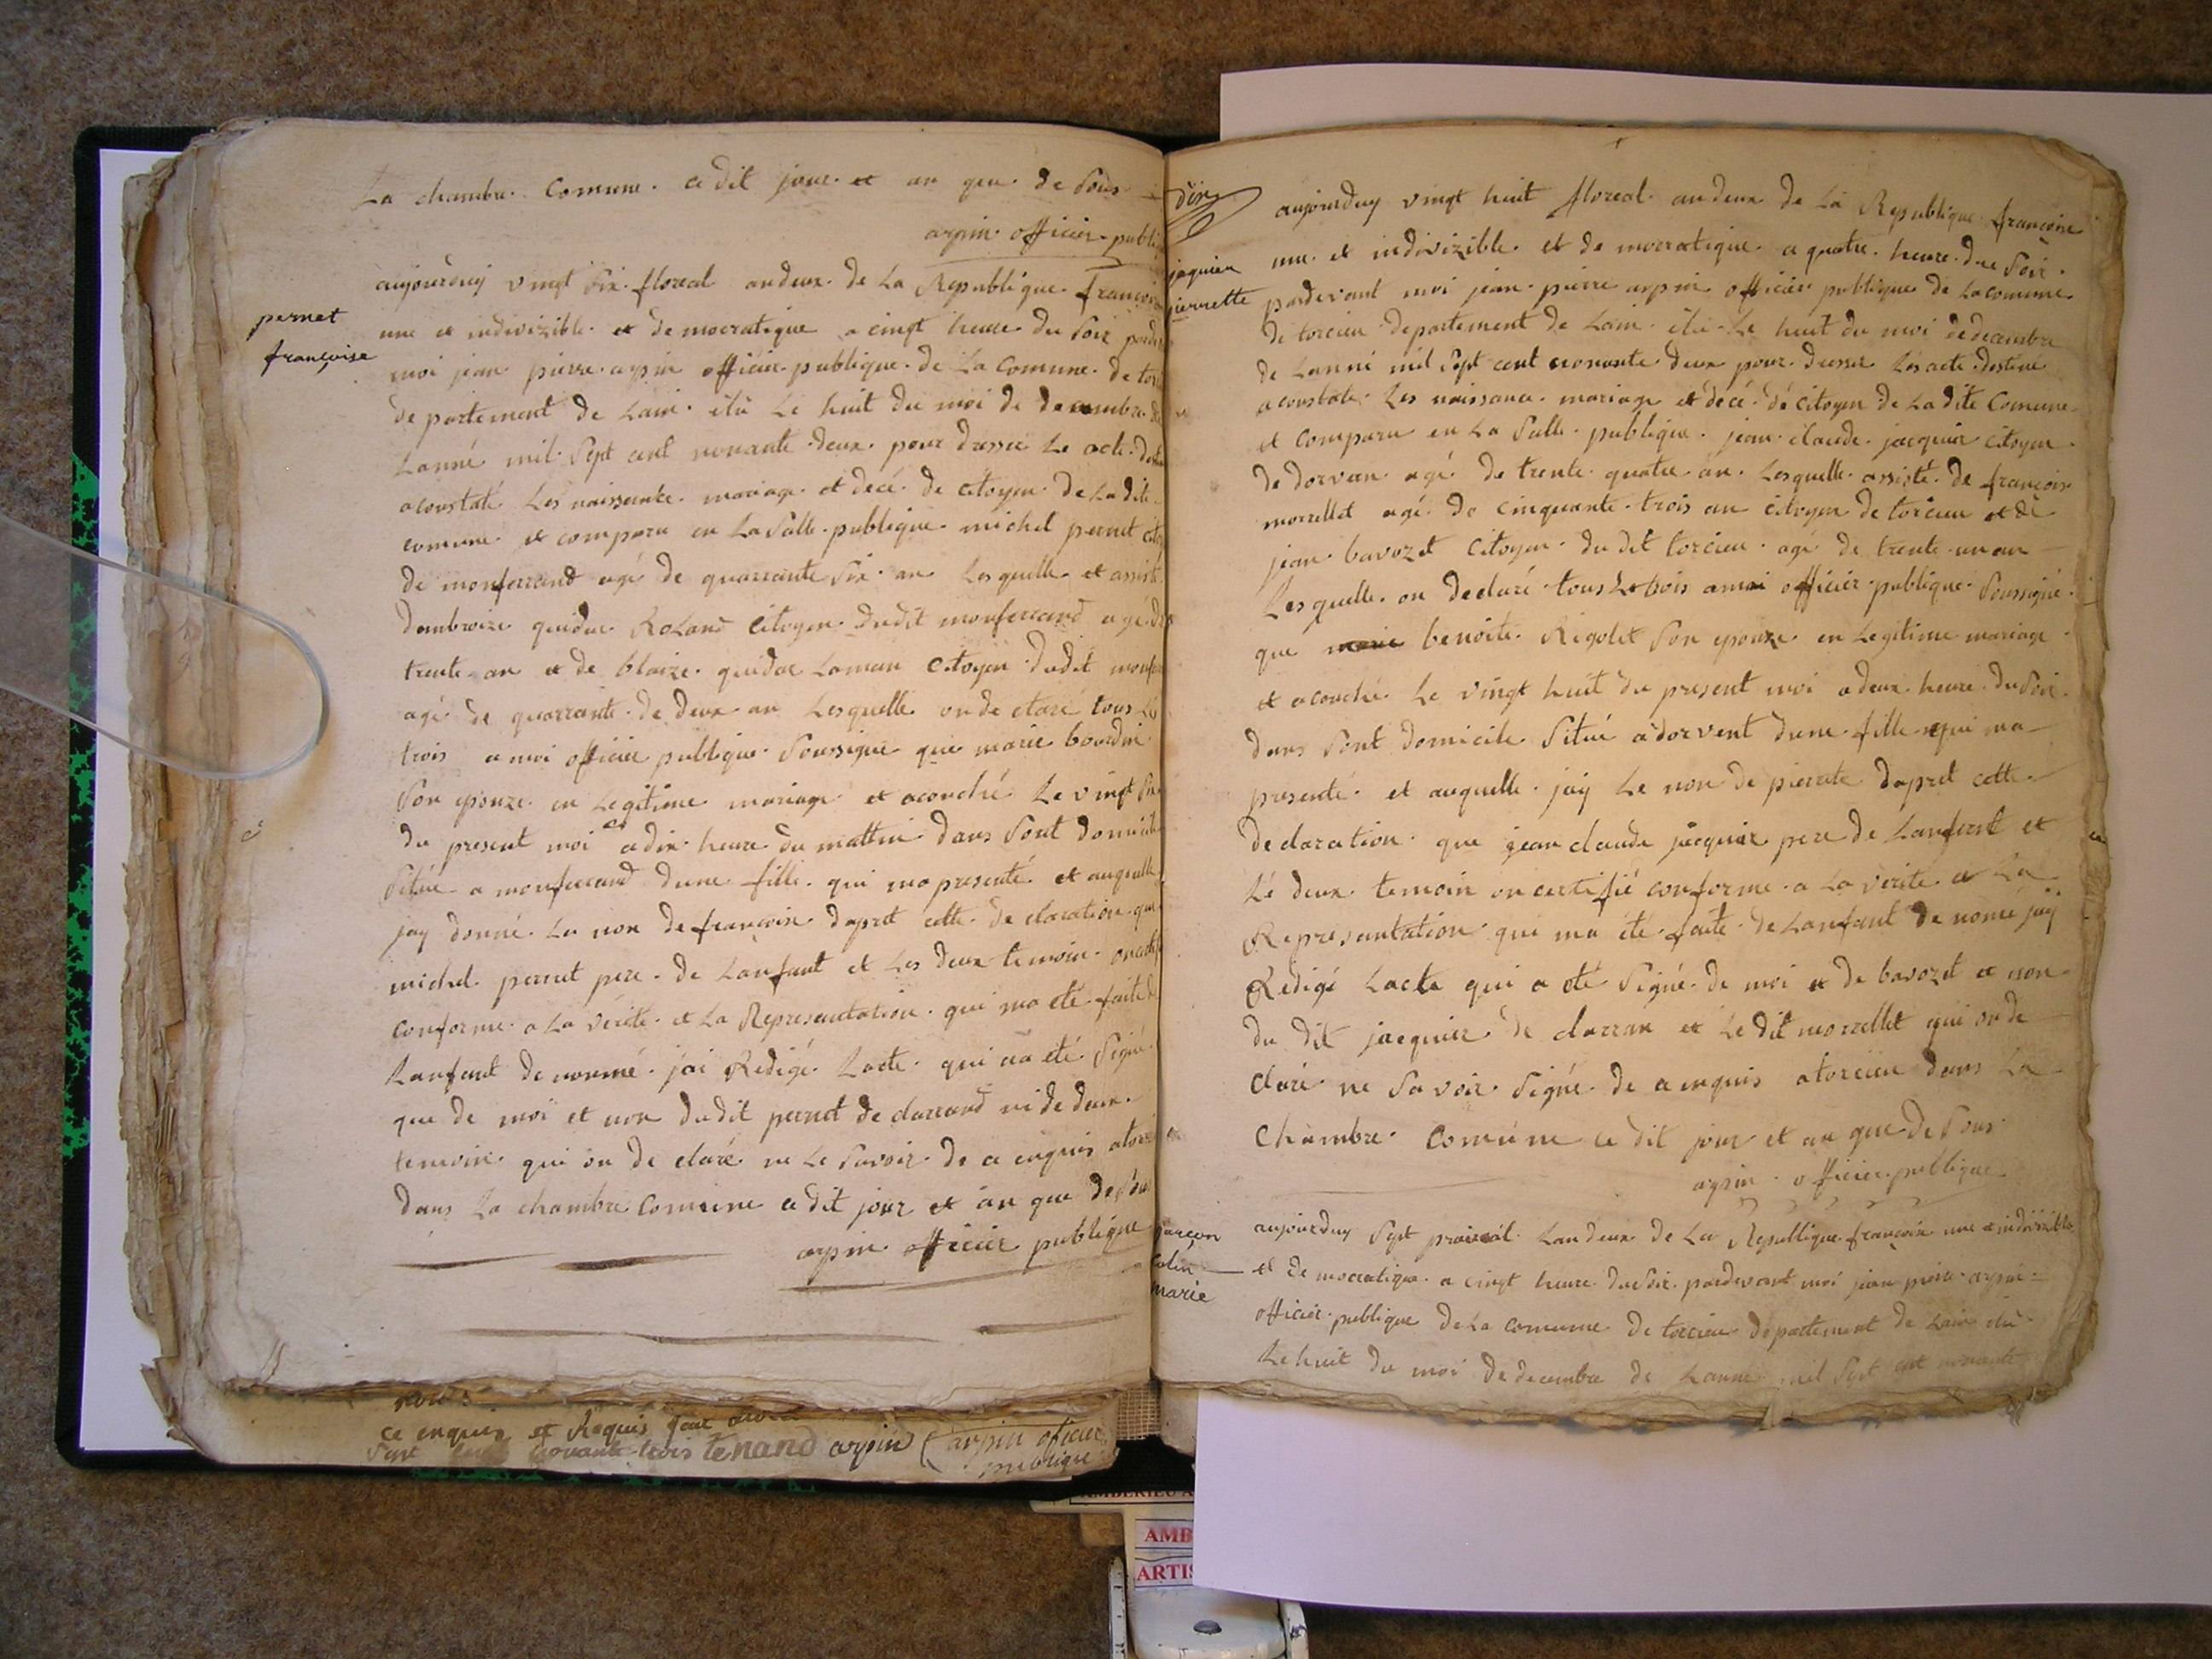 La chambre Comune ce dit jour et an que de Sous
arpin officier publi
pernet
françoise
aujourduy vingt Six floreal an deux de La Republique françoise
une et indivizible et democratique a cingt heure du Soir parde
moi jean pierre arpin officier publique de La Comune de tor
departement de Lain élu Le huit du moi de decembre de
Lanné mil Sept cent nonante deux pour dresser Le acte desti
a constaté Les naissanke mariage et decé de citoyen de La dite
comune et comparu en La Salle publique michel pernet cito
de monferrand agé de quarrante Six an Lesquelle et assisté
dambroize guidue RoLand Citoyen dudit monferrand agé de
trente an et de blaize guidoe Laman citoyen dudit monfe
agé de quarrante de deux an Lesquelle on declaré tous Lé
trois a moi officier publique Soussigné que marie bourdin
Son epouze en Legitime mariage et acouché Le vingt Six
du present moi a dix heure du mattin dans Sont domicile
Situé a monferrand dune fille qui ma presenté et auquelle
jay donné Le non de françoise dapret cette declaration que
michel pernet pere de Lanfant et Les deux temoin on certifi
conforme a La vérité et La Representation qui ma été faite de
Lanfant denommé jai Redigé Lacte qui a été Signé
que de moi et non dudit pernet declarand ni de deux
temoin qui on declaré ne Le Savoir de ce enquis a torci
dans La chambre Comune ce dit jour et an que de Sous
arpin officier publique
ce enquis et Requis
nonante trois tenand arpin arpin oficier
publique
jaquier
pierrette
aujourduy vingt huit floreal an deux de La Republique françoise
une et indivizible et democratique a quatre heure du Soir
pardevant moi jean pierre arpin officier publique de La comune
de torcieu departement de Lain élu Le huit du moi de decembre
de Lanné mil Sept cent nonante deux pour dresser Les acte destiné
a constaté Les naissance mariage et décé dé citoyen de La dite Comune
et comparu en La Salle publique jean claude jacquier citoyen
de dorvan agé de trente quatre an Lesquelle assisté de françois
morrellet agé de cinquante trois an citoyen de torcieu et de
jean bavozet Citoyen du dit torcieu agé de trente un an
Lesquelle on declaré tous Le trois a moi officier publique Soussigné
que marie benoite Rigolet Son epouze en Legitime mariage
et acouché Le vingt huit du present moi a deux heure du Soir
dans Sont domicile Situé a dorvent dune fille qui ma
presenté et auquelle jay Le non de pierrete dapret cette
declaration que jean claude jacquier pere de Lanfent et
Lé deux temoin on certifié conforme a La verite et La
Representation qui ma été faite de Lanfant de nomé jay
Redigé Lacte qui a eté Signé de moi et de bavozet et non
du dit jacquier declarran et Le dit morrellet qui on de
claré ne Savoir Signé de ce enquis a torcieu dans La
Chambre Comune ce dit jour et an que de Sous
arpin officier publique
garçon
Colin
marie
aujourduy Sept prairial Lan deux de La Republique françoise une et indivizible
et democratique a cingt heure du Soir pardevant moi jean pierre arpin
officier publique de La comune de torcieu departement de Lain élu
Le huit du moi de decembre de Lanné mil Sept cent nonante
AMB
ARTIS